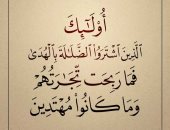 أُوْلَٰٓئِكَ
ٱلَّذِينَ ٱشۡتَرَوُاْ ٱلضَّلَٰلَةَ بِٱلۡهُدَىٰ
فَمَا رَبِحَت تِّجَٰرَتُهُمۡ
وَمَا كَانُواْ مُهۡتَدِينَ